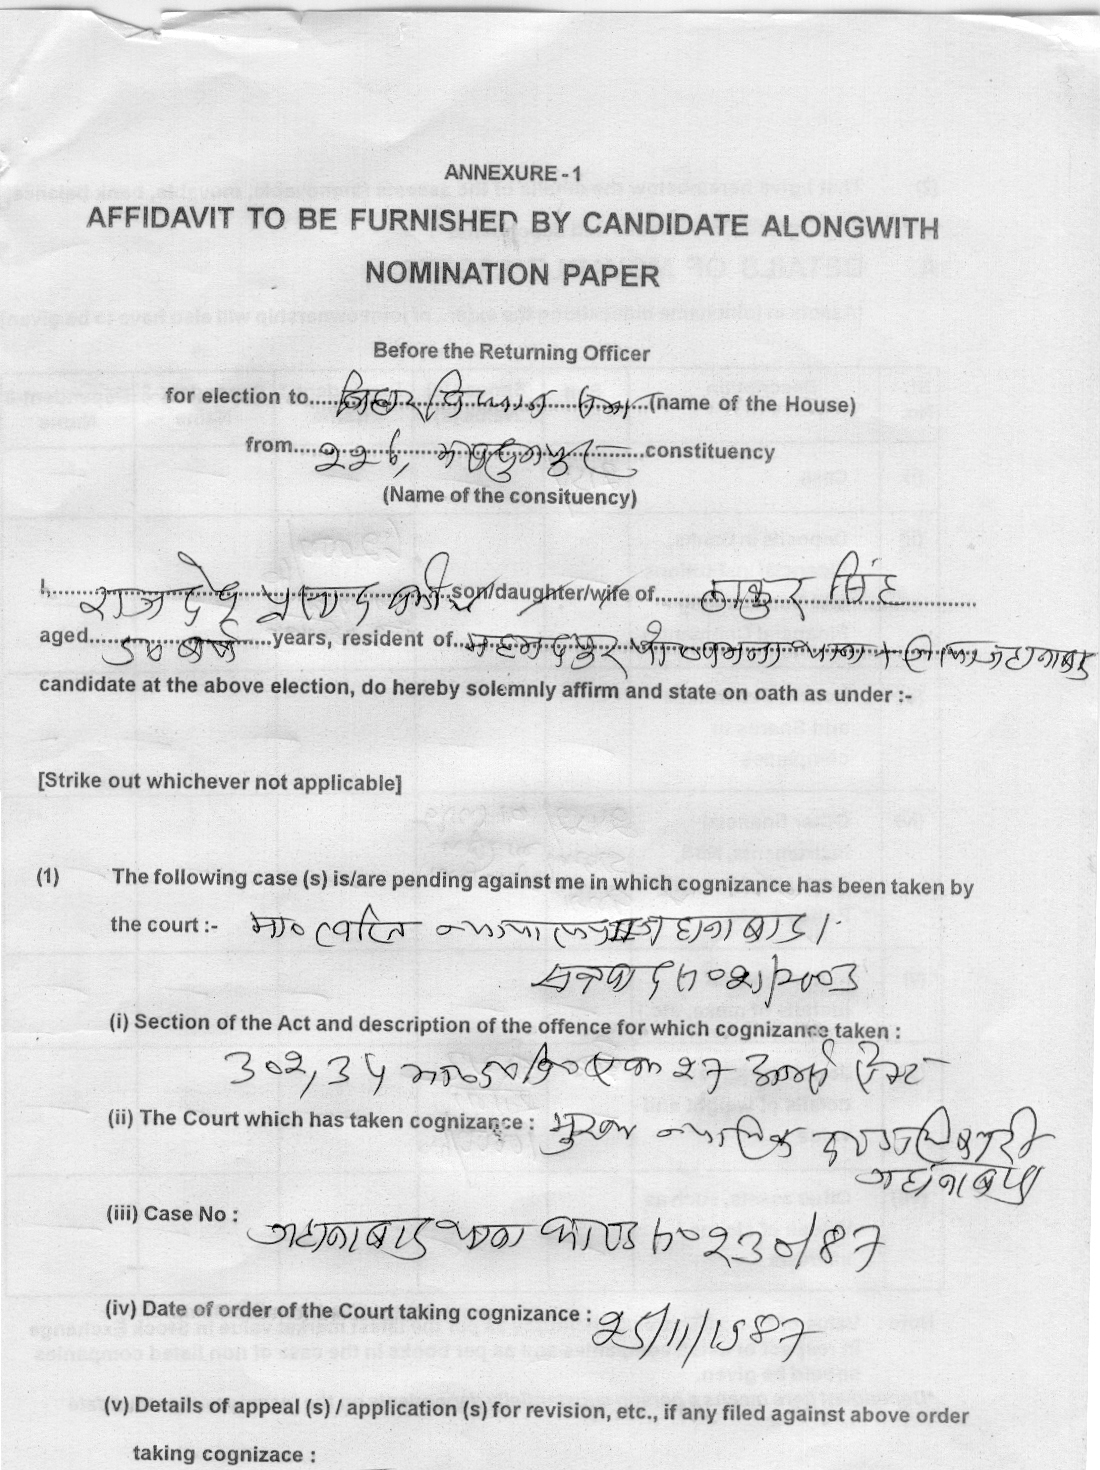 ANNEXURE - 1
AFFIDAVIT TO BE FURNISHED BY CANDIDATE ALONGWITH
NOMINATION PAPER
Before the Returning Officer
for election to..... बिहार विधान सभा .....(name of the House)
from..... 226, मखदुमपुर .....constituency
(Name of the consituency)
I,..... राजदेव प्रसाद .....son/daughter/wife of..... ठाकुर सिंह .....
aged..... वर्ष .....years, resident of..... जहानाबाद
candidate at the above election, do hereby solemnly affirm and state on oath as under :-
[Strike out whichever not applicable]
(1) The following case (s) is/are pending against me in which cognizance has been taken by
the court :- न्यायालय जहानाबाद।
/2003
(i) Section of the Act and description of the offence for which cognizance taken :
302, 34 27 आर्म्स ऐक्ट
(ii) The Court which has taken cognizance : मुख्य न्यायिक दण्डाधिकारी
जहानाबाद
(iii) Case No : जहानाबाद थाना काण्ड सं० 230/87
(iv) Date of order of the Court taking cognizance : 25/11/1987
(v) Details of appeal (s) / application (s) for revision, etc., if any filed against above order
taking cognizace :